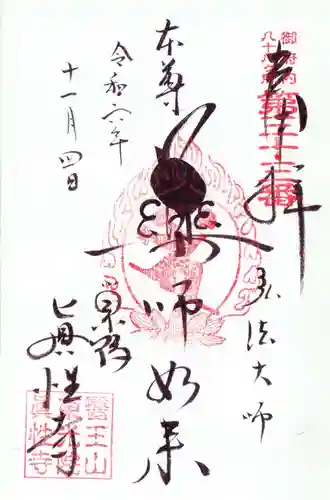 奉拝
御府内
八十八ヶ所
第三十三番
弘法大師
本尊
薬師如来
令和六年
十一月四日
東陽
真性寺
醫王山
眞性寺